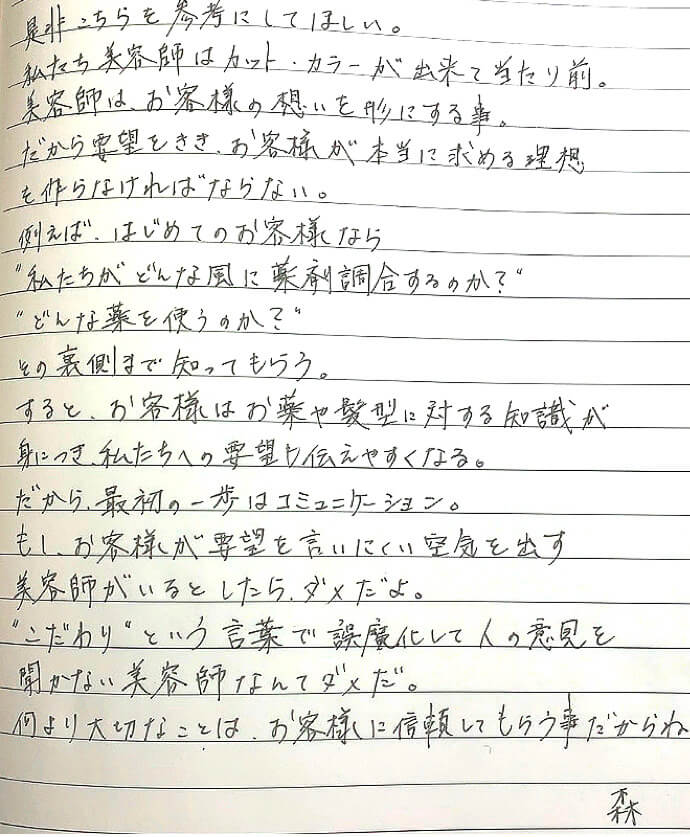 是非こちらを参考にしてほしい。
私たち美容師はカット・カラーが出来て当たり前。
美容師は、お客様の想いを形にする事。
だから要望をきき、お客様が本当に求める理想
を作らなければならない。
例えば、はじめてのお客様なら
"私たちがどんな風に薬剤調合するのか？"
"どんな薬を使うのか？"
その裏側まで知ってもらう。
すると、お客様はお薬や髪型に対する知識が
身につき、私たちへの要望も伝えやすくなる。
だから、最初の一歩はコミュニケーション。
もし、お客様が要望を言いにくい空気を出す
美容師がいるとしたら、ダメだよ。
"こだわり"という言葉で誤魔化して人の意見を
聞かない美容師なんてダメだ。
何より大切なことは、お客様に信頼してもらう事だからね
森